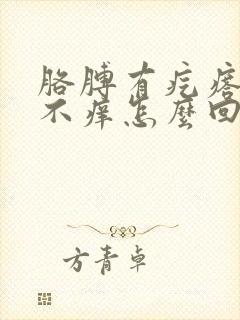 胳膊有疙瘩
不痒怎麽回
方青卓